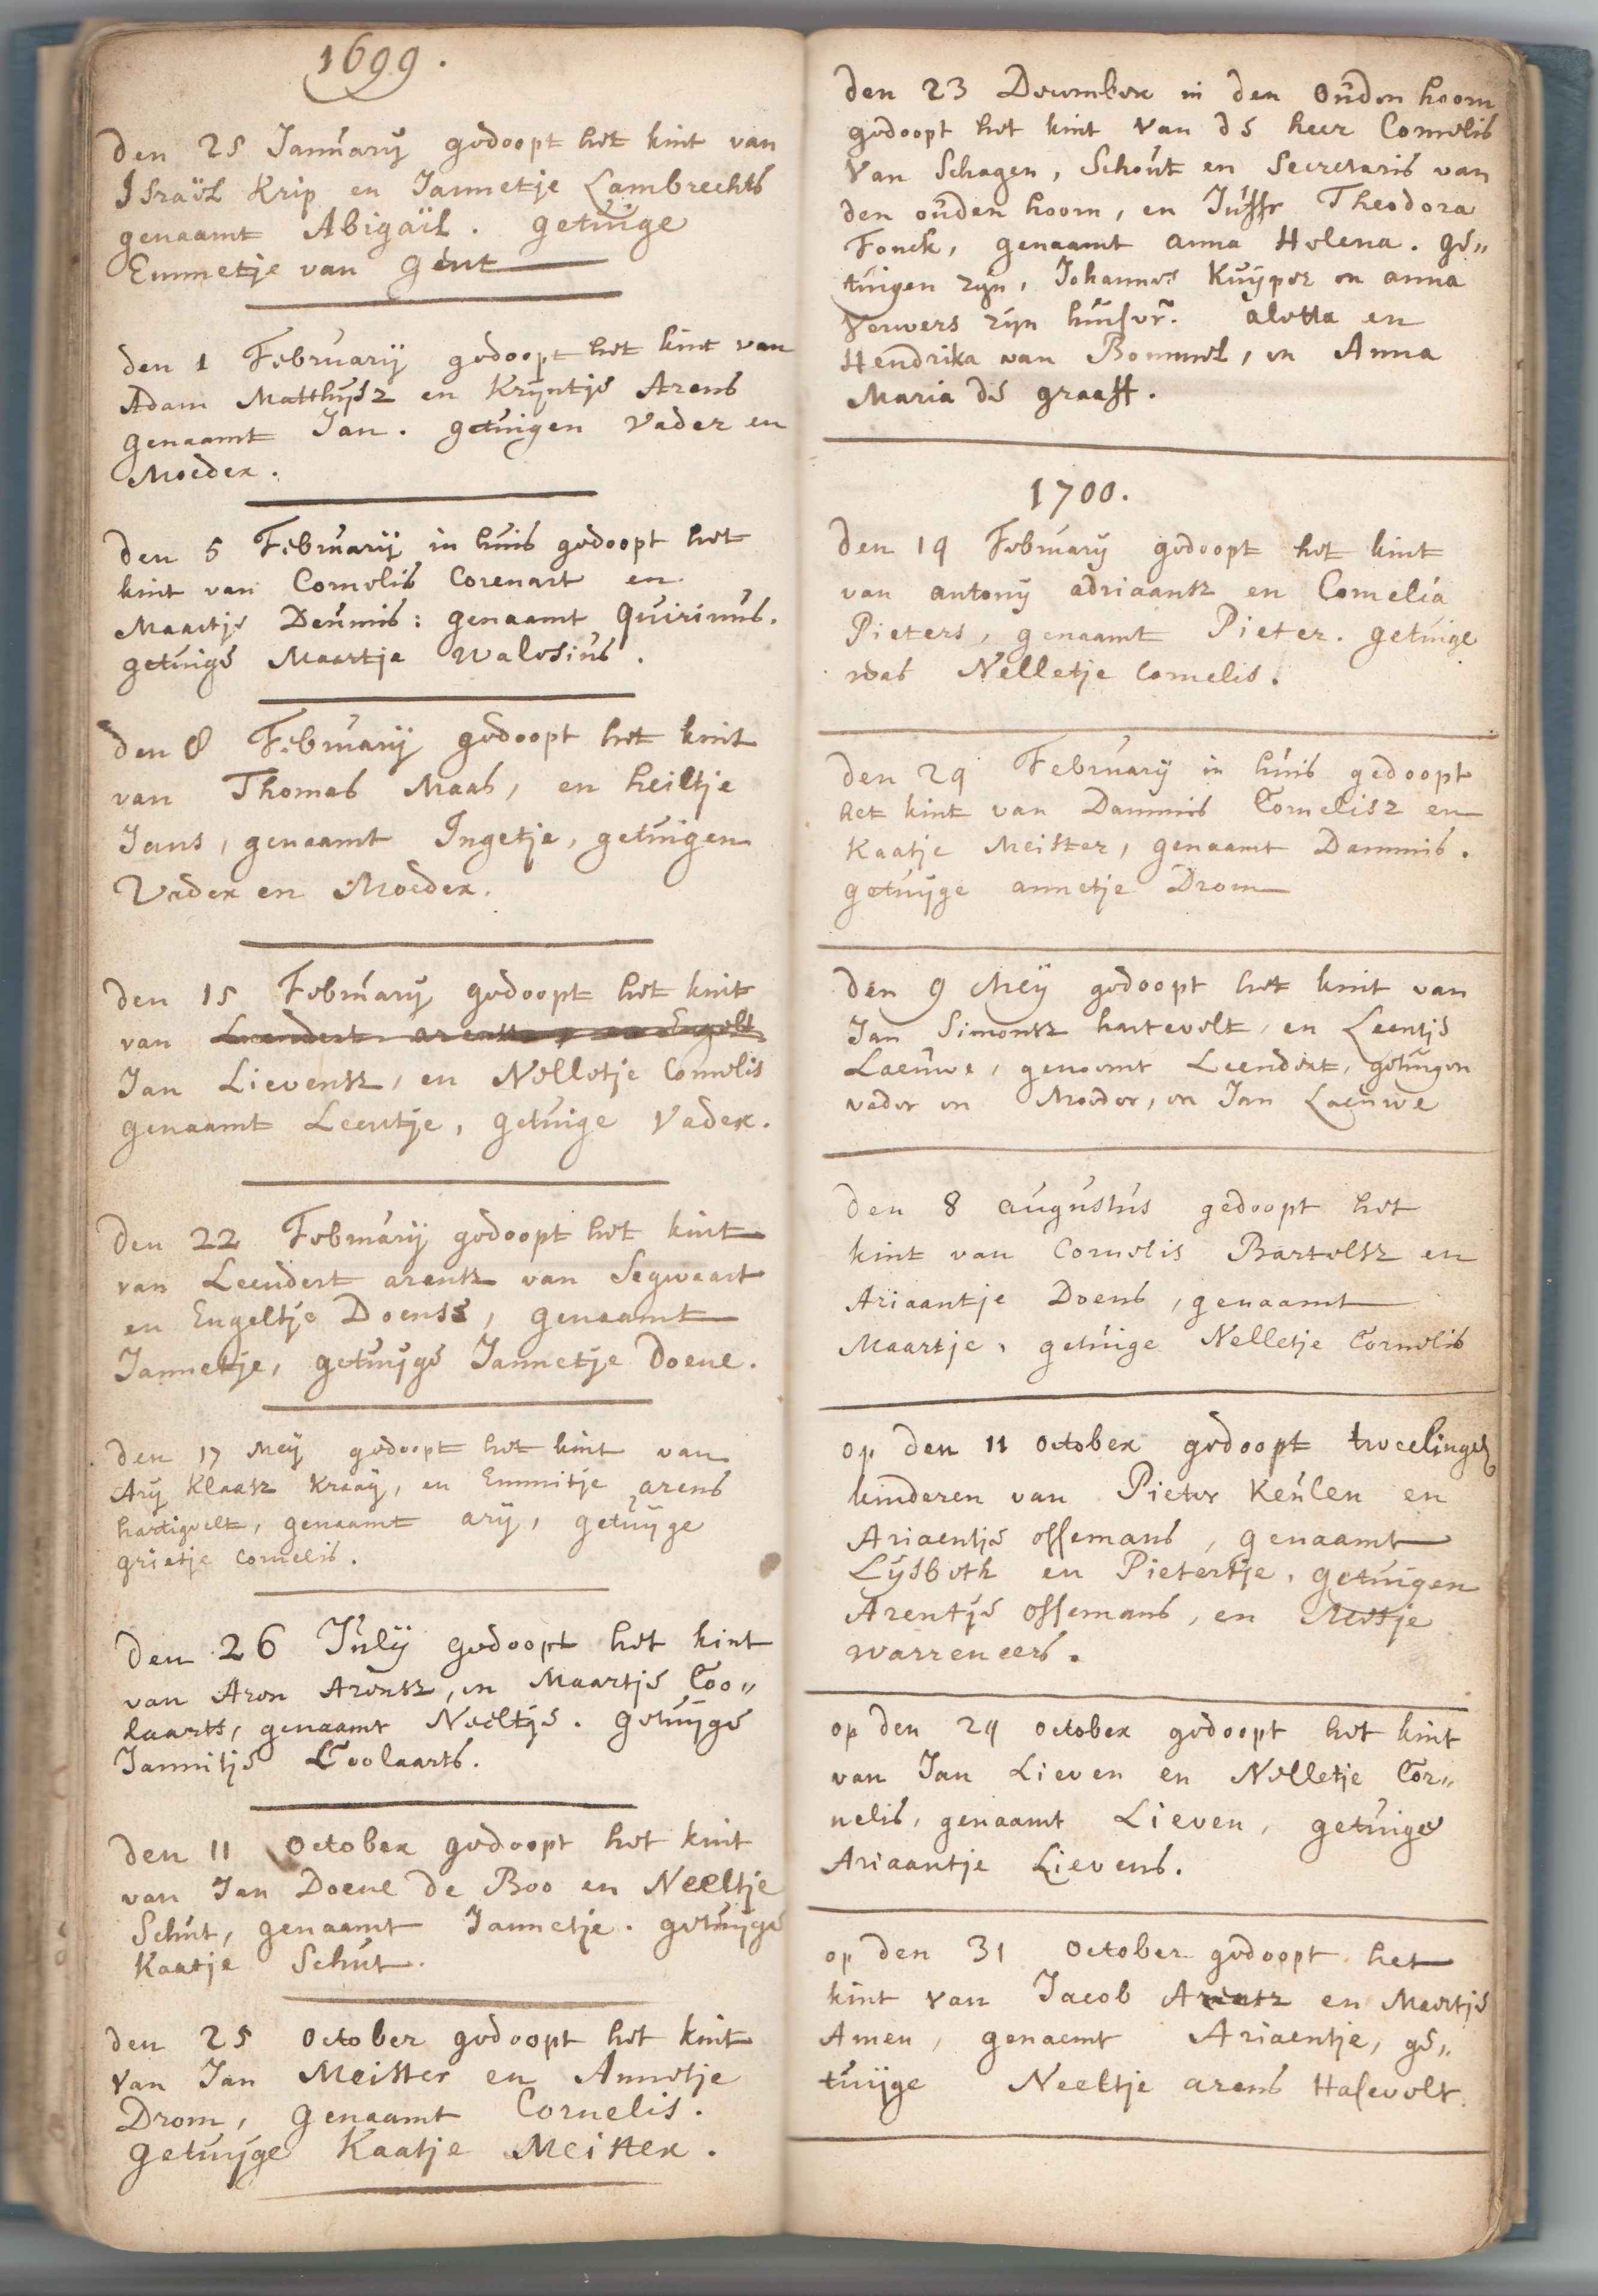 1699.
den 25 Januarij gedoopt het kint van
Israël Krip en Jannetje Lambrechts
genaamt Abigaïl. getuige
Emmetje van Gent
den 1 Februarij gedoopt het kint van
Adam Matthijsz en Krijntje Arens
genaamt Jan. getuigen Vader en
Moeder.
den 5 Februarij in huis gedoopt het
kint van Cornelis Corenart en
Maartje Deunis: genaamt Quirinus.
getuige Maartje Walesius.
den 8 Februarij gedoopt het kint
van Thomas Maas, en heiltje
Jans, genaamt Ingetje, getuigen
Vader en Moeder.
den 15 Februarij gedoopt het kint
van Leendert arentsz en Engelt
Jan Lieventsz, en Nelletje Cornelis
genaamt Leentje, getuige Vader.
den 22 Februarij gedoopt het kint
van Leendert arentsz van Segwaart
en Engeltje Doenss, genaamt
Jannetje, getuijge Jannetje Doene.
den 17 Meij gedoopt het kint van
Arij Klaasz Kraaij, en Emmitje arens
hartigvelt, genaamt arij, getuijge
grietje Cornelis.
den 26 Julij gedoopt het kint
van Aren Arentsz, en Maartje Coo„
laarts, genaamt Neeltje. getuijge
Jannitje Coolaarts.
den 11 October gedoopt het kint
van Jan Doene de Boo en Neeltje
Schut, genaamt Jannetje. getuijge
Kaatje Schut.
den 25 October gedoopt het kint
van Jan Meister en Annetje
Drom, genaamt Cornelis.
getuijge Kaatje Meister.
den 23 December in den Ouden hoorn
gedoopt het kint van de heer Cornelis
van Schagen, Schout en Secretaris van
den ouden hoorn, en Juffr Theodora
Fonck, genaamt anna Helena. ge„
tuigen zijn, Johannes Kuijper en anna
Verwers zijn huisvr. aletta en
Hendrika van Bommel, en Anna
Maria de graaff.
1700.
den 19 February gedoopt het kint
van antony adriaansz en Cornelia
Pieters, genaamt Pieter. getuige
was Nelletje Cornelis.
den 29 February in huis gedoopt
het kint van Dammis Cornelisz en
Kaatje Meister, genaamt Dammis.
getuijge annetje Drom
den 9 Meij gedoopt het kint van
Jan Simonsz hartevelt, en Leentje
Laeuwe, genaamt Leendert, getuigen
vader en Moeder, en Jan Laeuwe
den 8 augustus gedoopt het
kint van Cornelis Bartelsz en
Ariaantje Doens, genaamt
Maartje, getuige Nelletje Cornelis
op den 11 october gedoopt tweelingen
kinderen van Pieter Keulen en
Ariaentje offemans, genaamt
Lijsbeth en Pietertje, getuigen
Arentje offemans, en
warreneers.
op den 24 october gedoopt het kint
van Jan Lieven en Nelletje Cor„
nelis, genaamt Lieven, getuige
Ariaantje Lievens.
op den 31 October gedoopt het
kint van Jacob Arentsz en Maertje
Amen, genaemt Ariaentje, ge„
tuijge Neeltje arens Hasevelt.